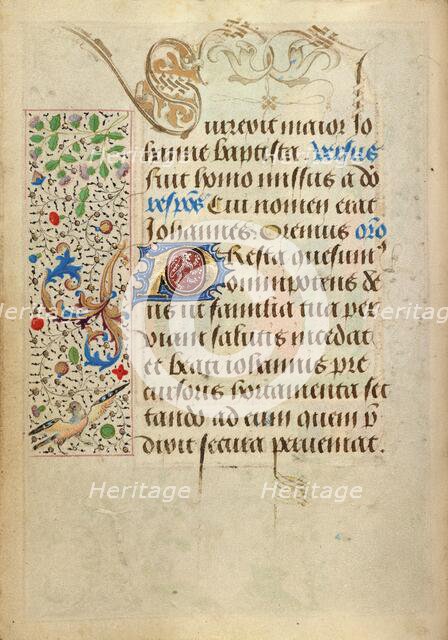 surrexit maior Jo
hanne baptista versus
fuit homo missus a do
respons Cui nomen erat
Johannes Oremus oro
Presta quesumus
omnipotens de
us ut familia tua per
viam salutis incedat
et beati iohannis pre
cursoris hortamenta sec
tando ad eum quem p
dixit secura perveniat.
Heritage Images
Heritage
Heritage
Heritage